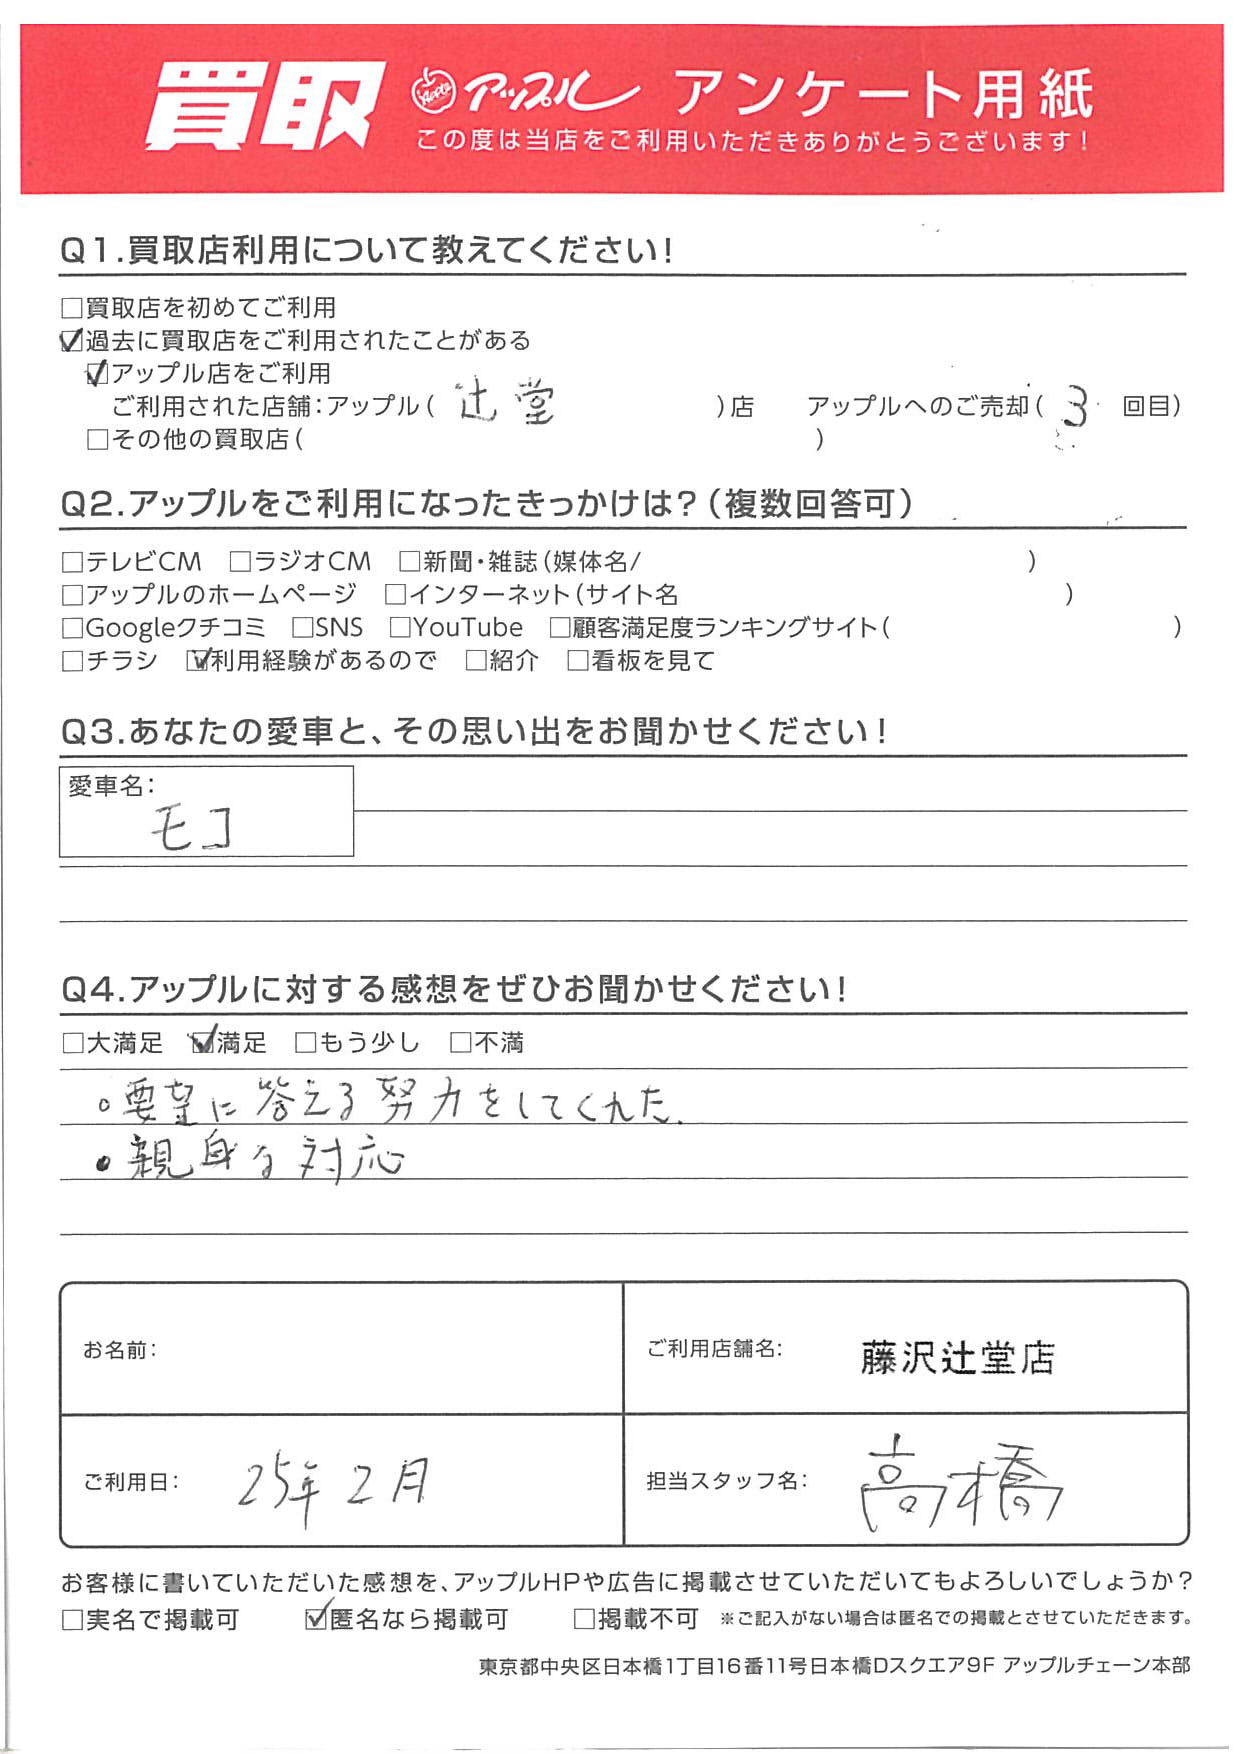 買取 Apple アップル アンケート用紙
この度は当店をご利用いただきありがとうございます!
Q1.買取店利用について教えてください!
□買取店を初めてご利用
☑過去に買取店をご利用されたことがある
☑アップル店をご利用
ご利用された店舗:アップル( 辻堂 )店 アップルへのご売却( 3 回目)
□その他の買取店( )
Q2.アップルをご利用になったきっかけは?(複数回答可)
□テレビCM □ラジオCM □新聞・雑誌(媒体名/ )
□アップルのホームページ □インターネット(サイト名 )
□Googleクチコミ □SNS □YouTube □顧客満足度ランキングサイト( )
□チラシ ☑利用経験があるので □紹介 □看板を見て
Q3.あなたの愛車と、その思い出をお聞かせください!
愛車名:
モコ
Q4.アップルに対する感想をぜひお聞かせください!
□大満足 ☑満足 □もう少し □不満
。要望に答える努力をしてくれた.
・親身な対応
お名前:
ご利用店舗名: 藤沢辻堂店
ご利用日: 25年2月
担当スタッフ名: 高橋
お客様に書いていただいた感想を、アップルHPや広告に掲載させていただいてもよろしいでしょうか?
□実名で掲載可 ☑匿名なら掲載可 □掲載不可 ※ご記入がない場合は匿名での掲載とさせていただきます。
東京都中央区日本橋1丁目16番11号日本橋Dスクエア9F アップルチェーン本部